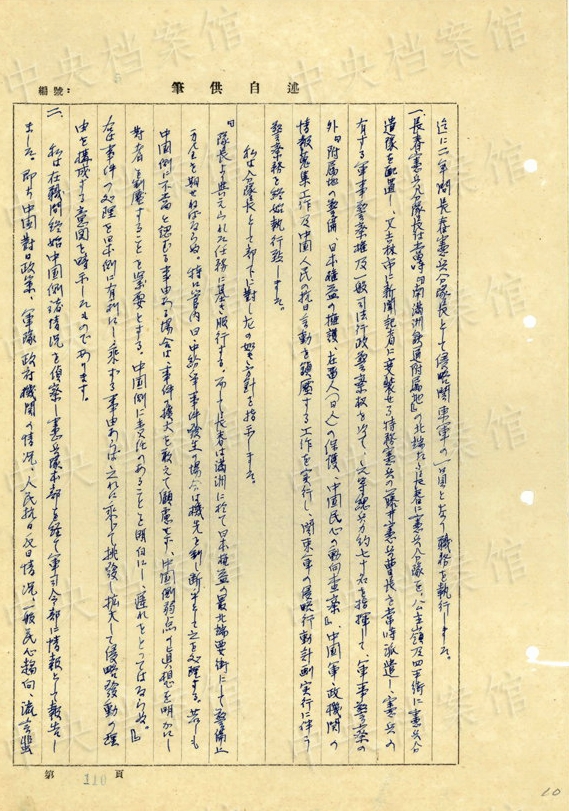 編號：
筆供自述
迄ニ二年間長春憲兵分隊長として侵略関東軍の一員となり職務を執行しました。
一、長春憲兵分隊長は当時『南満洲鉄道附属地』の北端たる長春に憲兵分隊を、公主嶺及四平街に憲兵分
遣隊を配置し、又吉林市に新聞記者に変装せる特務憲兵の藤井憲兵曹長を常時派遣し、憲兵の
有する軍事警察権及一般司法行政警察権を以て、元等憲兵約七十名を指揮して、軍事警察の
外『附属地の警備、日本権益の擁護、在留人（日人）の保護、中国民心の動向査察』、中国軍政機関の
情報蒐集工作及中国人民の抗日言動を鎮圧する工作を実行し、関東軍の侵略行動計画実行に伴う
警察務を終始執行致しました。
私は分隊長として部下に対し左の如き方針を指示しました。
『隊長より与えられた任務に基き服行する。而して長春は満洲に於て日本権益の最北端要衝にして警備上
万全を期せねばならぬ。特に管内日、中紛争事件発生の場合は機先を制し断乎として之を処理する。苟しくも
中国側に不当と認むる事由ある場合は事件拡大を敢えて顧慮せず、中国側弱点の真想を明かにし
対者を制圧することを緊要とする。中国側に責任のあることを明白にし遅れをとってはならぬ。』
右は事件の処理を日本側に有利にし、乗ずる事由あらば之れに乗って挑発、拡大して侵略発動の理
由を構成する意図を暗示したものであります。
二、私は在職間終始中国側諸情況を偵察し憲兵隊本部を経て軍司令部に情報として報告し
ました。即ち中国対日政策、軍隊政府機関の情況、人民抗日反日情況、一般民心趨向、流言蜚
第 110 頁
10
中央档案馆